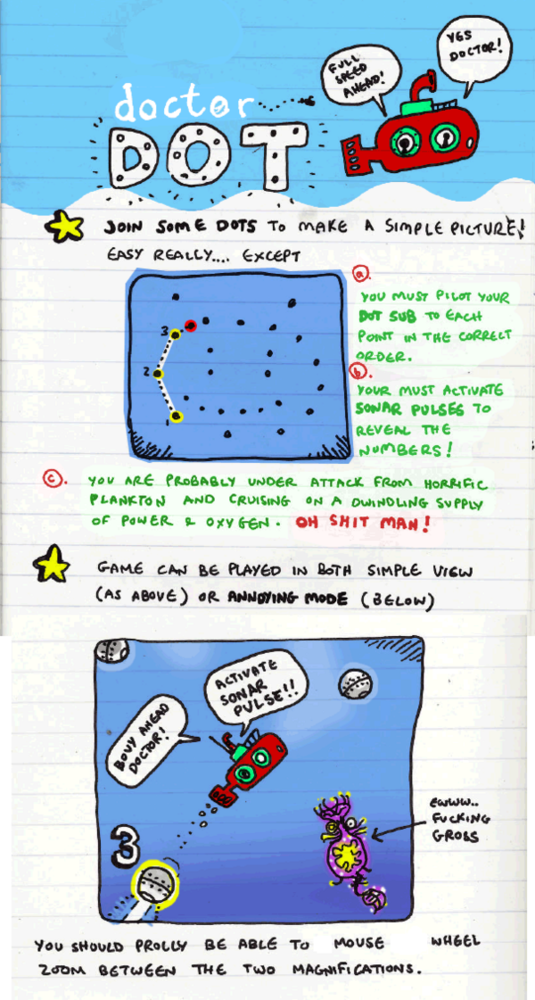 FULL
SPEED
AHEAD!
YES
DOCTOR!
doctor
DOT
JOIN SOME DOTS TO MAKE A SIMPLE PICTURE!
EASY REALLY.... EXCEPT
a.
YOU MUST PILOT YOUR
DOT SUB TO EACH
POINT IN THE CORRECT
ORDER.
b.
YOUR MUST ACTIVATE
SONAR PULSES TO
REVEAL THE
NUMBERS!
3
2
1
c. YOU ARE PROBABLY UNDER ATTACK FROM HORRIFIC
PLANKTON AND CRUISING ON A DWINDLING SUPPLY
OF POWER & OXYGEN. OH SHIT MAN!
GAME CAN BE PLAYED IN BOTH SIMPLE VIEW
(AS ABOVE) OR ANNOYING MODE (BELOW)
ACTIVATE
SONAR
PULSE!!
BOUY AHEAD
DOCTOR!
3
EWWW..
FUCKING
GROSS
YOU SHOULD PROLLY BE ABLE TO MOUSE WHEEL
ZOOM BETWEEN THE TWO MAGNIFICATIONS.